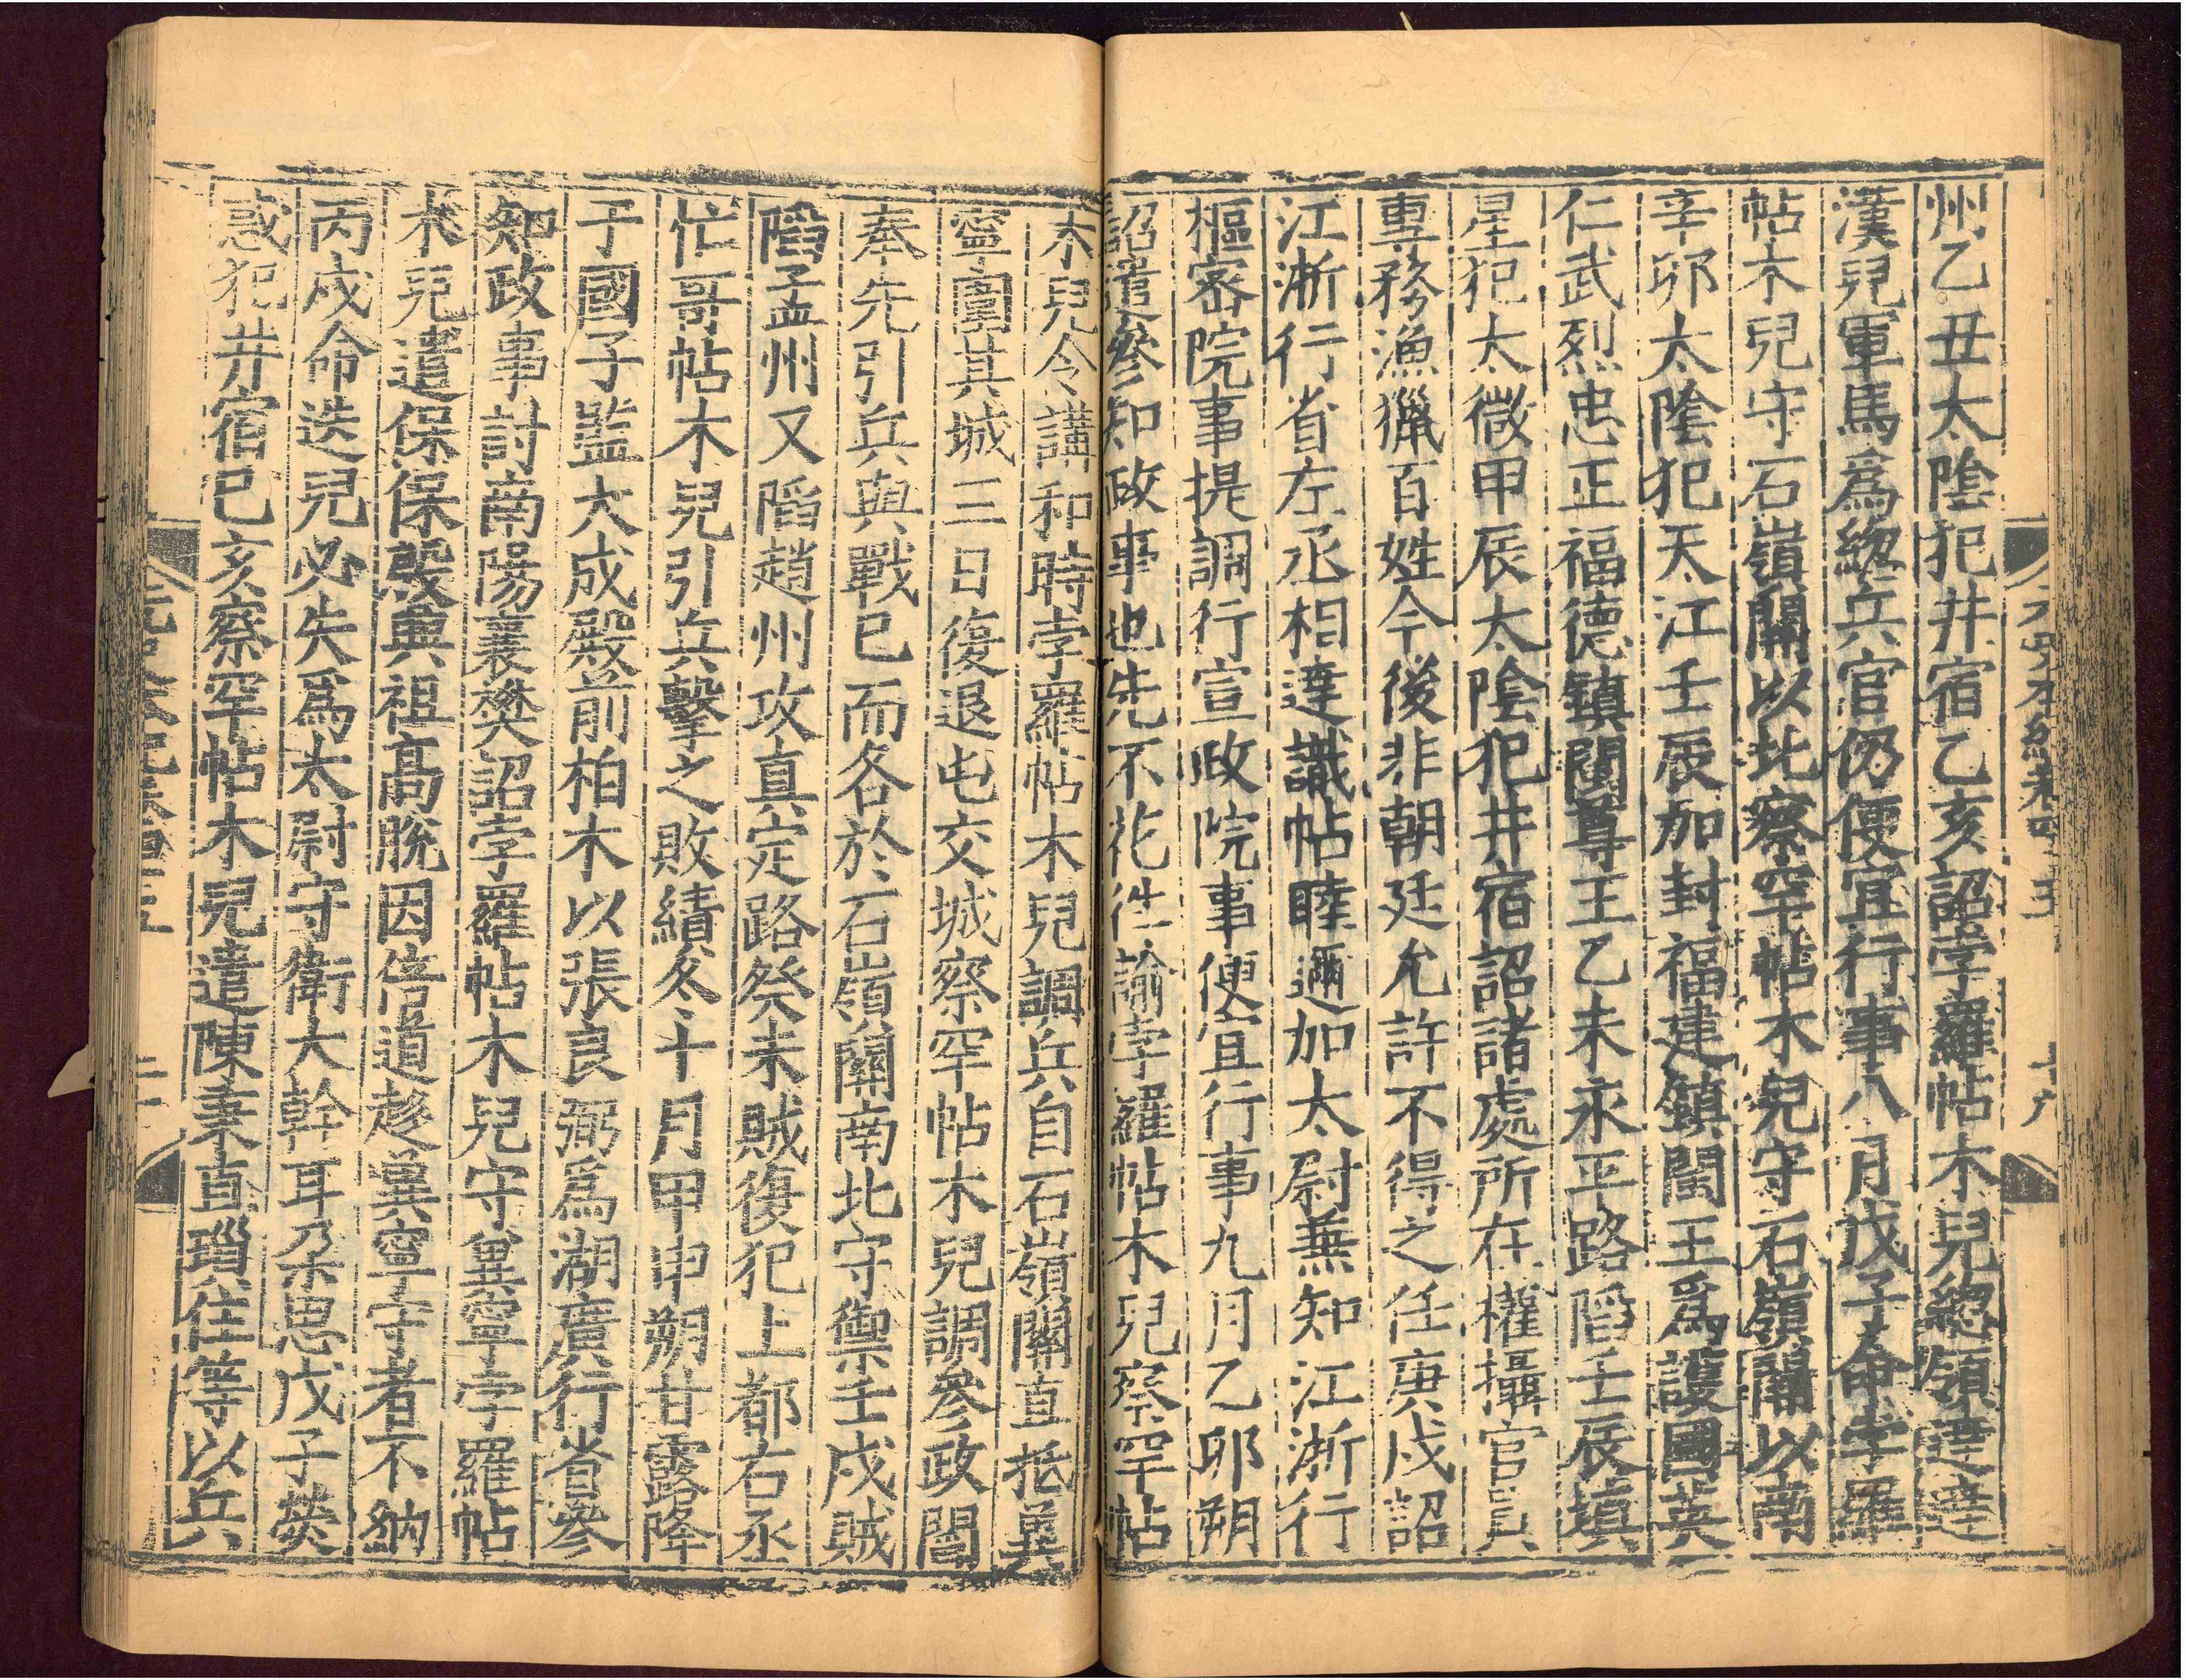 州乙丑太陰犯井宿乙亥詔孛羅帖木兒總領達達
漢兒軍馬爲緫兵官仍便宜行事八月戊子命孛羅
帖木兒守石嶺關以北察罕帖木兒守石嶺關以南
辛卯太陰犯天江壬辰加封福建鎮閩王爲護國英
仁武烈忠正福德鎮閩尊王乙未永平路陷壬辰填
星犯太微甲辰太陰犯井宿詔諸處所在權攝官員
專務漁獵百姓今後非朝廷允許不得之任庚戌詔
江浙行省左丞相達識帖睦邇加太尉兼知江浙行
樞密院事提調行宣政院事便宜行事九月乙卯朔
詔遣參知政事也先不花徃諭孛羅帖木兒察罕帖
木兒令講和時孛羅帖木兒調兵自石嶺關直抵兾
寧圍其城三日復退屯交城察罕帖木兒調參政閻
奉先引兵與戰已而各於石嶺關南北守禦壬戌賊
陷孟州又陷趙州攻真定路癸未賊復犯上都右丞
忙哥帖木兒引兵擊之敗績冬十月甲申朔甘露降
于國子監大成殿前柏木以張良弼爲湖廣行省參
知政事討南陽襄樊詔孛羅帖木兒守兾寧孛羅帖
木兒遣保保殷興祖高脫因倍道趁兾寧守者不納
丙戌命迭兒必失爲太尉守衛大斡耳朶思戊子熒
惑犯井宿已亥察罕帖木兒遣陳秉直瑣住等以兵